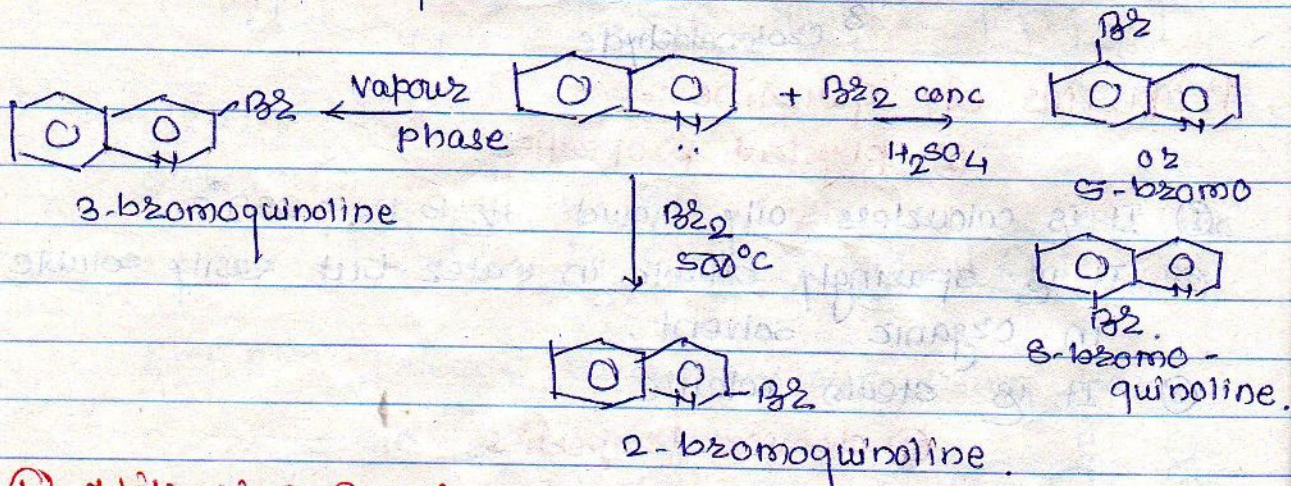 Br
vapour
phase
Br
N
N
+ Br2 conc
H2SO4
N
or
5-bromo
3-bromoquinoline
Br2
500°C
N
Br
8-bromo-
quinoline.
N
Br
2-bromoquinoline.